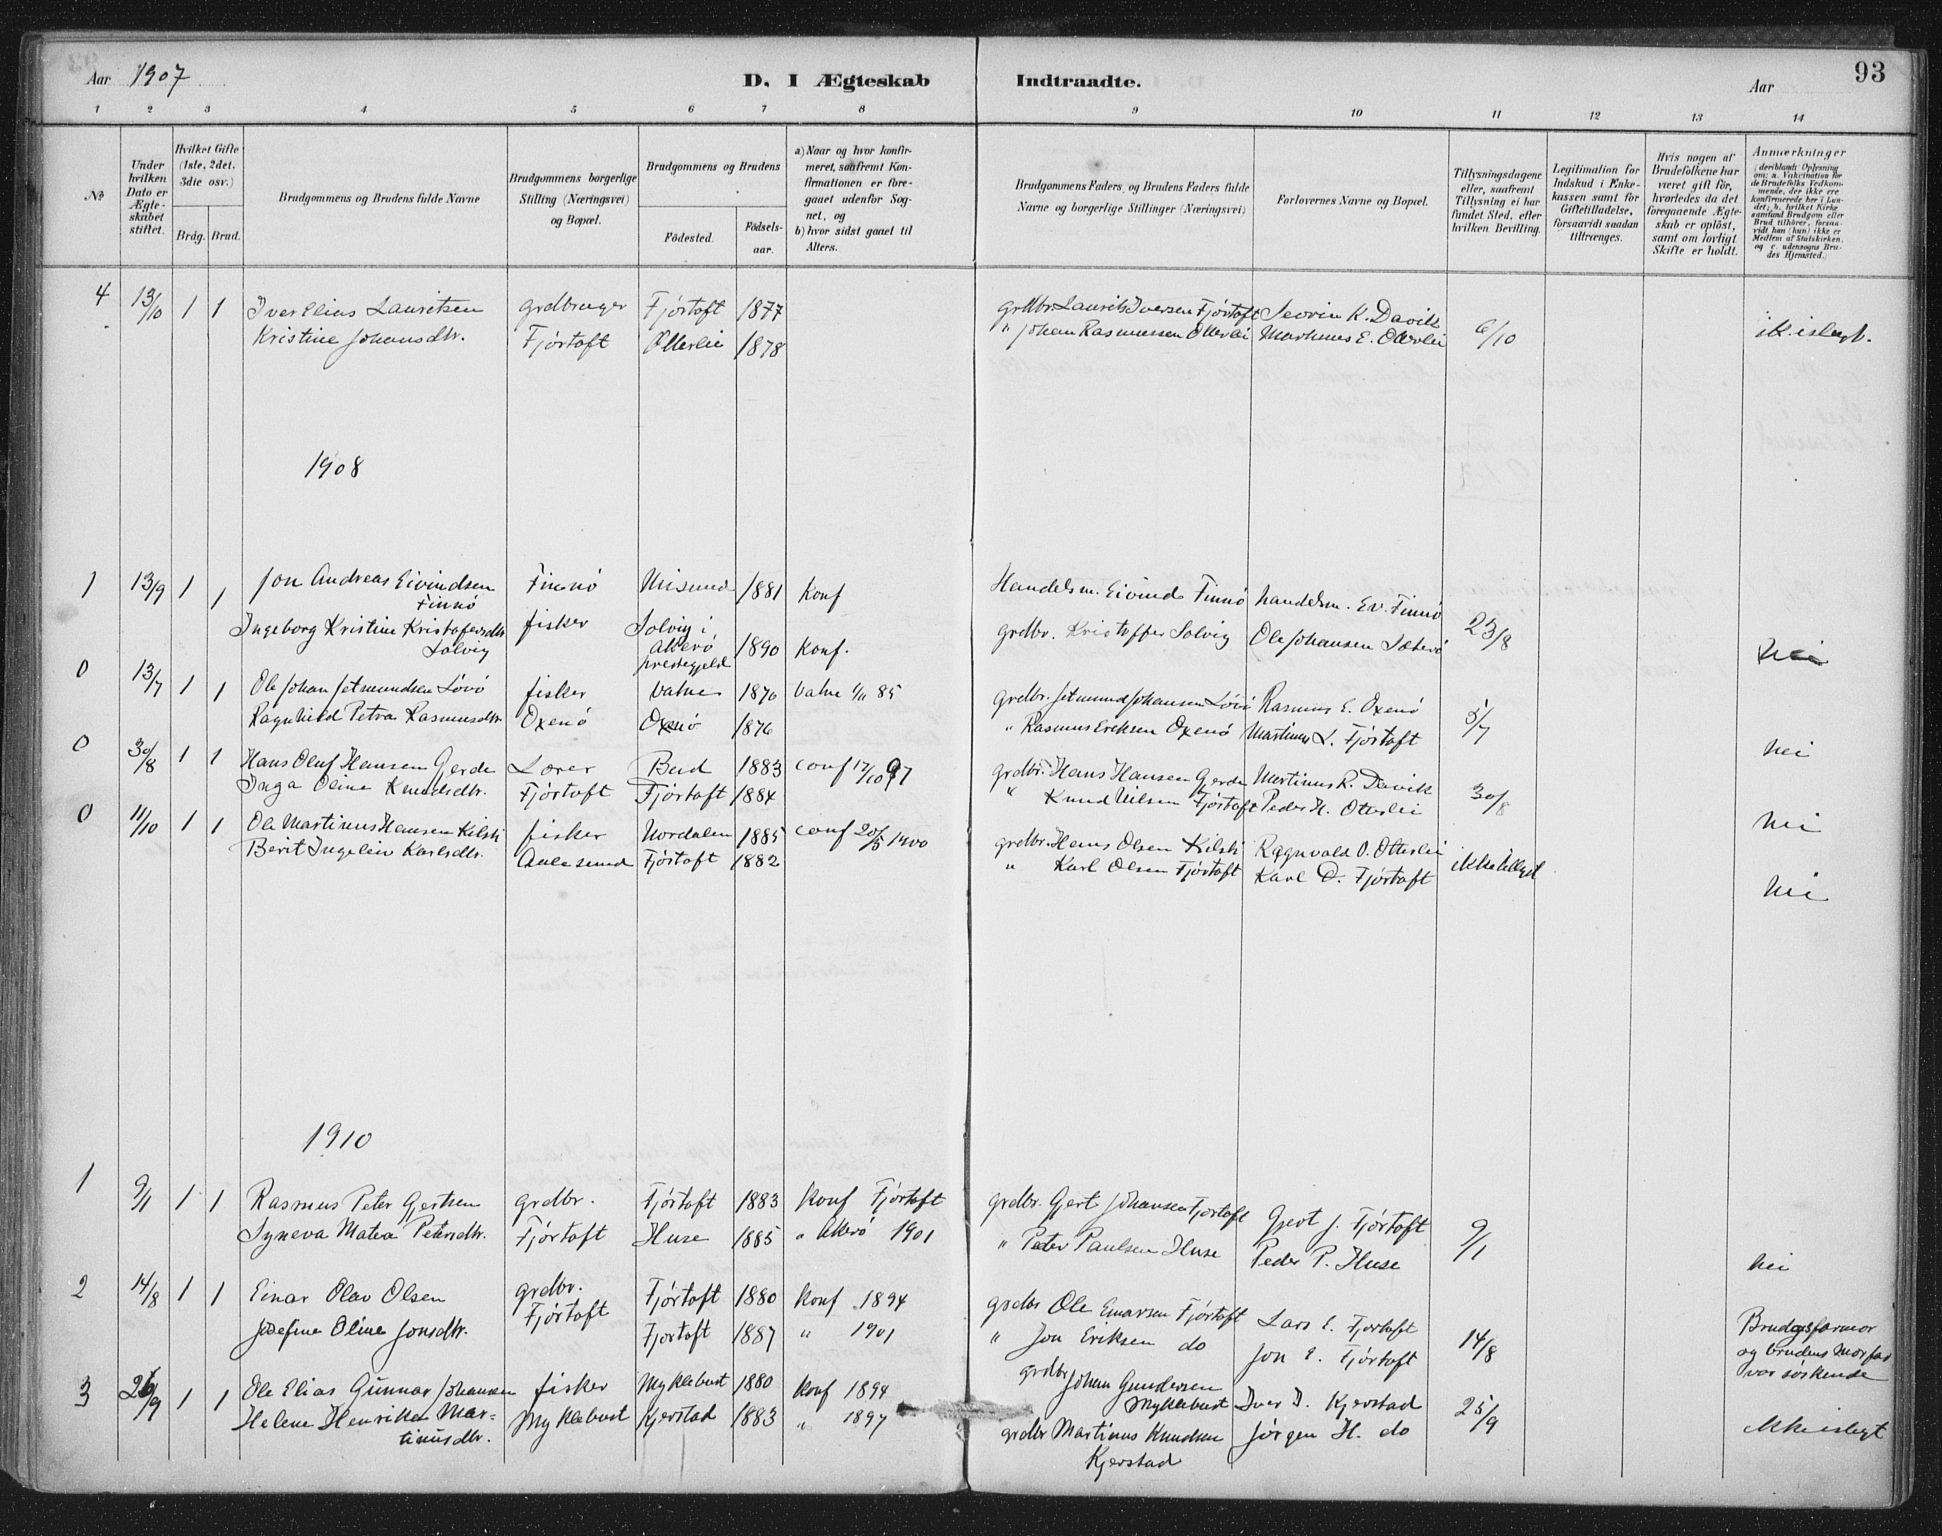 93
Aar 1907 D. I Ægteskab Indtraadte. Aar
1 2 3 4 5 6 7 8 9 10 11 12 13 14
№
Under hvilken Dato er Ægteskabet stiftet.
Hvilket Gifte (1ste, 2det, 3die osv.)
Brdg. Brud.
Brudgommens og Brudens fulde Navne
Brudgommens borgerlige Stilling (Næringsvei) og Bopæl.
Brudgommens og Brudens
Födested. Födsels-aar.
a) Naar og hvor konfirmeret, saafremt Konfirmationen er foregaaet udenfor Sognet, og
b) hvor sidst gaaet til Alters.
Brudgommens Faders og Brudens Faders fulde Navne og borgerlige Stillinger (Næringsvei)
Forlovernes Navne og Bopæl.
Tillysningsdagene eller, saafremt Tillysning ei har fundet Sted, efter hvilken Bevilling.
Legitimation for Indskud i Enkekassen samt for Giftetilladelse, forsaavidt saadan tiltrænges.
Hvis nogen af Brudefolkene har været gift för, hvorledes da det foregaaende Ægteskab er oplöst, samt om lovligt Skifte er holdt.
Anmærkninger
(deriblandt Oplysning om: a. Vakcination for de Brudefolks Vedkommende, der ikke ere konfirmerede her i Landet; b. hvilket Kirkesamfund Brudgom eller Brud tilhörer, forsaavidt han (hun) ikke er Medlem af Statskirken, og c. udensogns Brudes Hjemsted.)
4 13/10 1 1 Iver Elias Lauritsen grdbruger Fjörtoft 1877 grdbr. Laurits Iversen Fjörtoft Severin K. Davik 6/10 ik. islegt.
Kristine Johansdtr. Fjörtoft Otterlei 1878 " Johan Rasmussen Otterlei Martinus E. Otterlei
1908
1 13/9 1 1 Jon Andreas Eivindsen Finnö Finnö 1881 Konf Handelsm. Eivind Finnö Handelsm. Ev. Finnö 23/8
Finnö
Ingeborg Kristine Kristofersdtr fisker Solvig i 1890 Konf. grdbr. Kristoffer Solvig Ole Johansen
Solvig Akerö prestegjeld nei
0 13/7 1 1 Ole Johan Jetmundsen Lövö fisker Vatne 1870 Vatne 4/11 85 grdbr. Jetmund Johansen Lövö Rasmus E. Oxenö 5/7
Ragnhild Petra Rasmusdtr. Oxenö Oxenö 1876 " Rasmus Eriksen Oxenö Martinus L. Fjörtoft nei
0 30/8 1 1 Hans Oluf Hansen Gjerde Lærer Bud 1883 conf 17/10 97 grdbr. Hans Hansen Gjerde Martinus R. Davik 30/8
Inga Oline Knudsdtr. Fjörtoft Fjörtoft 1884 " Knud Nilsen Fjörtoft Peder H. Otterlei nei
0 11/10 1 1 Ole Martinus Hansen Kilsti fisker Nordalen 1885 conf 20/5 1900 grdbr. Hans Olsen Kilsti Ragnvald O. Otterlei ikke tillyst
Berit Ingelein Karlsdtr. Aalesund Fjörtoft 1882 " Karl Olsen Fjörtoft Karl O. Fjörtoft nei
1910
1 9/1 1 1 Rasmus Peter Gjertsen grdbr. Fjörtoft 1883 Konf Fjörtoft grdbr. Gjert Johansen Fjörtoft Gjert J. Fjörtoft 9/1
Syneva Matea Petersdtr. Fjörtoft Huse 1885 " Akerö 1901 " Peter Paulsen Huse Peder P. Huse nei
2 14/8 1 1 Einar Olav Olsen grdbr. Fjörtoft 1880 Konf 1894 grdbr Ole Einarsen Fjörtoft Lars E. Fjortoft 14/8 Brudgs farmor
Josefine Oline Jonsdtr. Fjörtoft Fjortoft 1887 " 1901 " Jon Eriksen do Jon E. Fjörtoft og brudens morfar
var söskende
3 26/9 1 1 Ole Elias Gunnar Johansen fisker Myklebust 1880 Konf 1894 grdbr Johan Gundersen Myklebust Iver I. Kjerstad 25/9
Helene Henrikke Mar- Myklebust Kjerstad 1883 " 1897 grdbr Martinus Knudsen Jörgen H. do ikke islegt
tinusdtr. Kjerstad